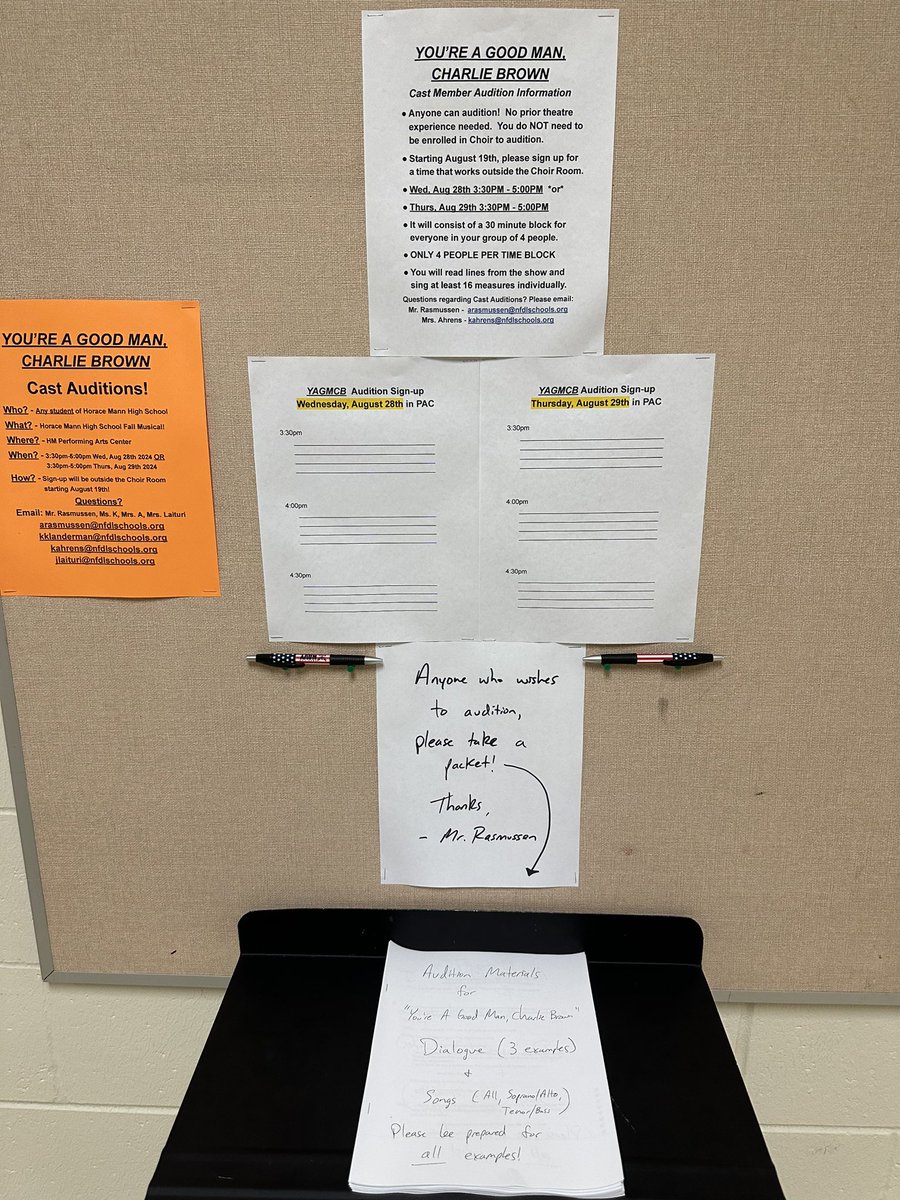 YOU'RE A GOOD MAN,
CHARLIE BROWN
Cast Member Audition Information
● Anyone can audition! No prior theatre
experience needed. You do NOT need to
be enrolled in Choir to audition.
● Starting August 19th, please sign up for
a time that works outside the Choir Room.
● Wed, Aug 28th 3:30PM - 5:00PM *or*
● Thurs, Aug 29th 3:30PM - 5:00PM
● It will consist of a 30 minute block for
everyone in your group of 4 people.
● ONLY 4 PEOPLE PER TIME BLOCK
● You will read lines from the show and
sing at least 16 measures individually.
Questions regarding Cast Auditions? Please email:
Mr. Rasmussen - arasmussen@nfdlschools.org
Mrs. Ahrens - kahrens@nfdlschools.org
YOU'RE A GOOD MAN,
CHARLIE BROWN
Cast Auditions!
Who? - Any student of Horace Mann High School
What? - Horace Mann High School Fall Musical!!
Where? - HM Performing Arts Center
When? - 3:30pm-5:00pm Wed, Aug 28th 2024 OR
3:30pm-5:00pm Thurs, Aug 29th 2024
How? - Sign-up will be outside the Choir Room
starting August 19th!
Questions?
Email: Mr. Rasmussen, Ms. K, Mrs. A, Mrs. Laituri
arasmussen@nfdlschools.org
kklanderman@nfdlschools.org
kahrens@nfdlschools.org
jlaituri@nfdlschools.org
YAGMCB Audition Sign-up
Wednesday, August 28th in PAC
3:30pm
4:00pm
4:30pm
YAGMCB Audition Sign-up
Thursday, August 29th in PAC
3:30pm
4:00pm
4:30pm
Anyone who wishes
to audition,
please take a
packet!
Thanks,
- Mr. Rasmussen
Audition Materials
for
"You're A Good Man, Charlie Brown"
Dialogue (3 examples)
+
Songs (All, Soprano/Alto,
Tenor/Bass)
Please be prepared for
all examples!